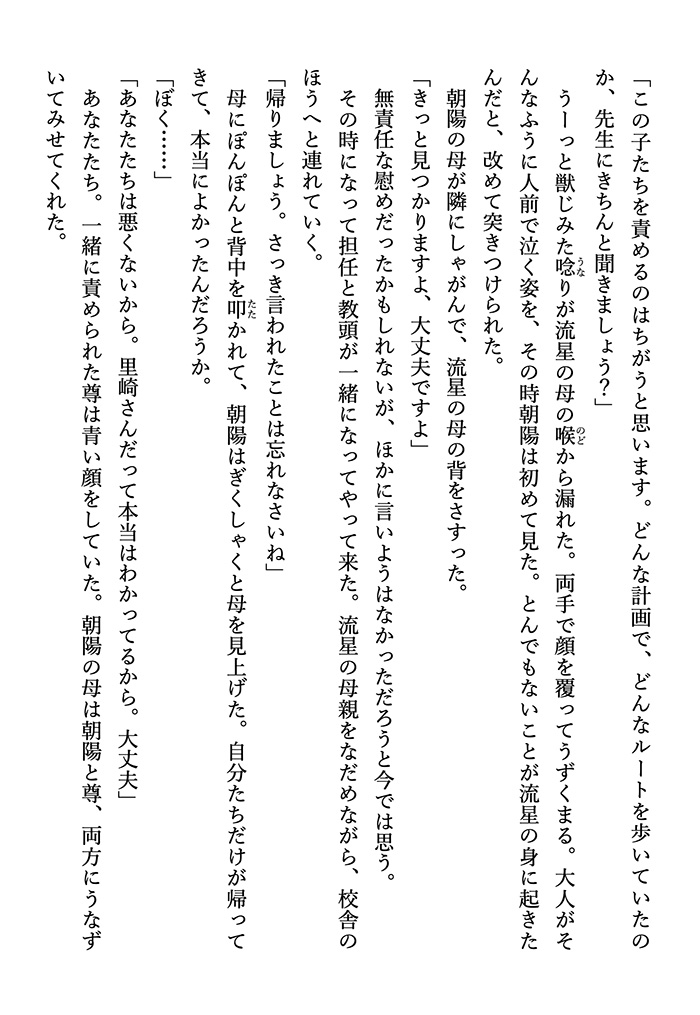 「この子たちを責めるのはちがうと思います。どんな計画で、どんなルートを歩いていたの
か、先生にきちんと聞きましょう？」
　うーっと獣じみた唸うなりが流星の母の喉のどから漏れた。両手で顔を覆ってうずくまる。大人がそ
んなふうに人前で泣く姿を、その時朝陽は初めて見た。とんでもないことが流星の身に起きた
んだと、改めて突きつけられた。
　朝陽の母が隣にしゃがんで、流星の母の背をさすった。
「きっと見つかりますよ、大丈夫ですよ」
　無責任な慰めだったかもしれないが、ほかに言いようはなかっただろうと今では思う。
　その時になって担任と教頭が一緒になってやって来た。流星の母親をなだめながら、校舎の
ほうへと連れていく。
「帰りましょう。さっき言われたことは忘れなさいね」
　母にぽんぽんと背中を叩たたかれて、朝陽はぎくしゃくと母を見上げた。自分たちだけが帰って
きて、本当によかったんだろうか。
「ぼく……」
「あなたたちは悪くないから。里崎さんだって本当はわかってるから。大丈夫」
　あなたたち。一緒に責められた尊は青い顔をしていた。朝陽の母は朝陽と尊、両方にうなず
いてみせてくれた。